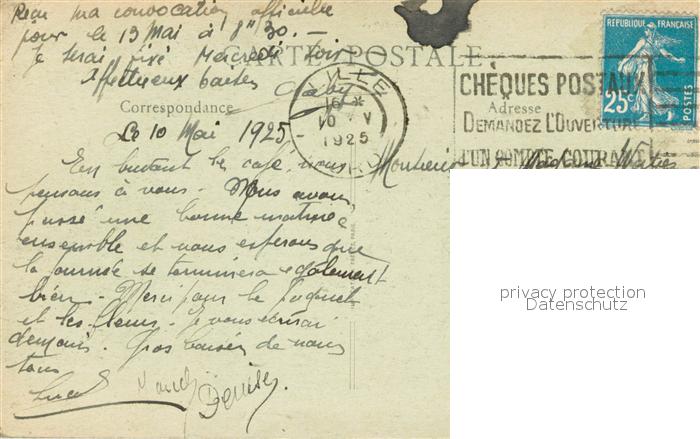 Reçu ma convocation officielle
pour le 13 Mai à 8h30. —
Je serai fixé Mercredi soir
Affectueux baisers
CARTE POSTALE
Correspondance
Le 10 Mai 1925 -
En buvant le café, nous
pensons à vous - Nous avons
passé une bonne matinée
ensemble et nous espérons que
la journée se terminera également
bien. Merci pour le paquet
et les fleurs. Je vous écrirai
demain. Gros baisers de nous
tous
Denise.
LILLE
10 V
1925
CHÈQUES POSTAUX
Adresse
DEMANDEZ L'OUVERTURE
D'UN COMPTE COURANT
Monsieur et Madame
RÉPUBLIQUE FRANÇAISE
25c
POSTES
privacy protection
Datenschutz